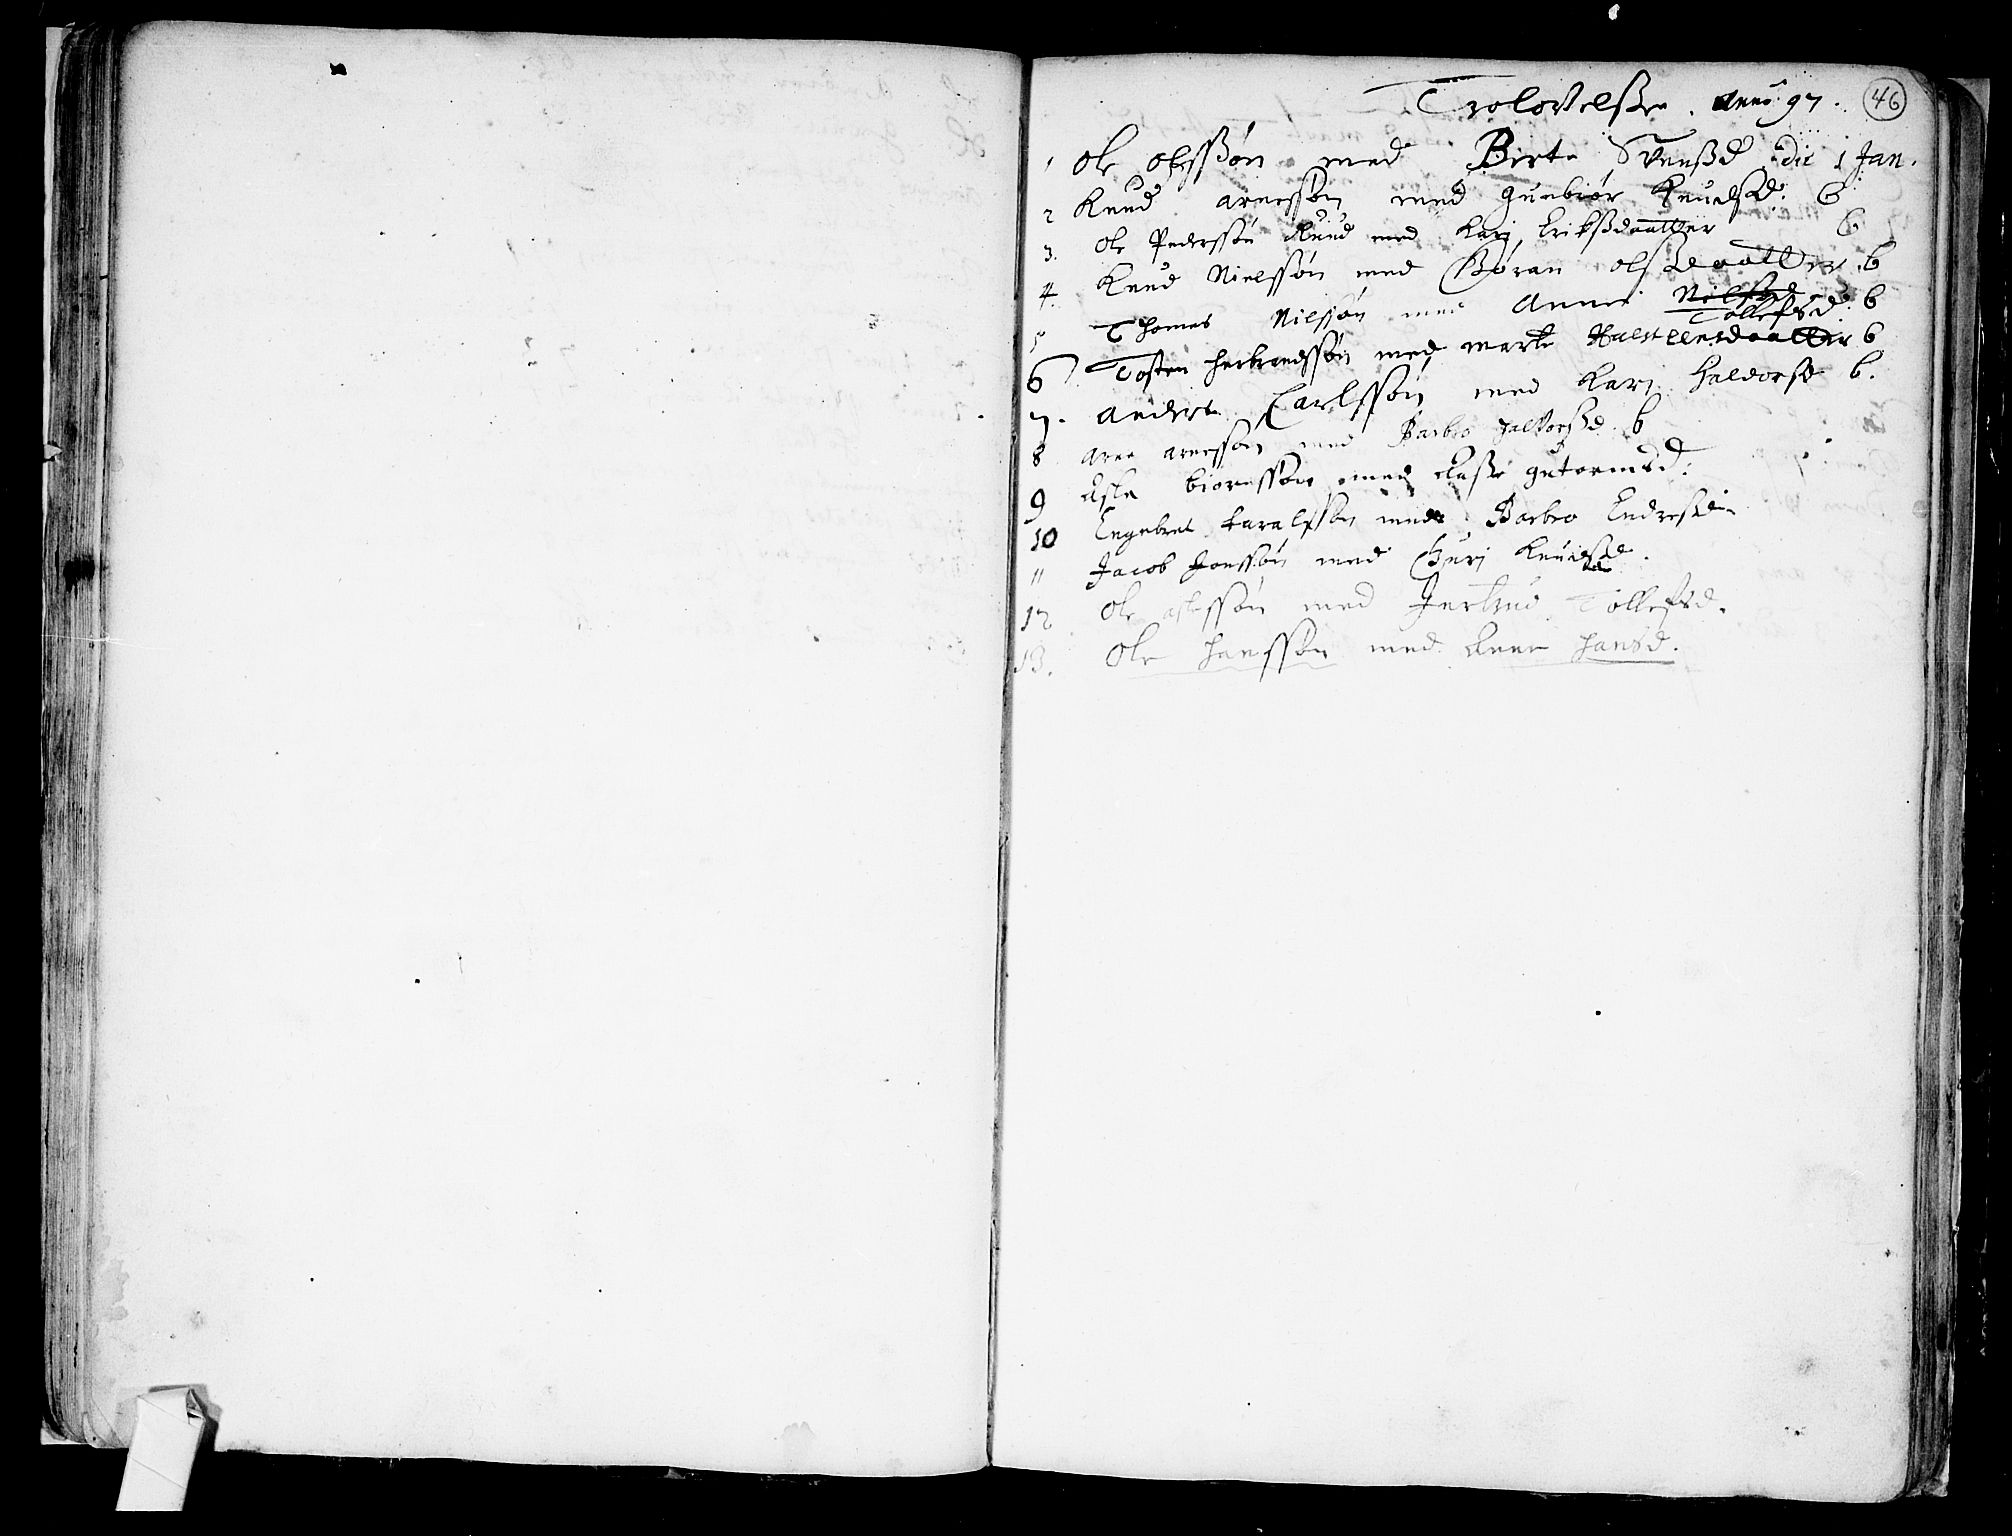 Troloffvelsser. Anno 97. 46
1 Ole olssøn med Birte Svenßd die 1 Jan.
2 Knud arnessøn med Gunbiør Knudsd: 6
3. Ole Pederssøn Ruud med Kari Eriksdaatter 6
4. Knud Nielssøn med Gøran olsdaatter. 6
5 Thomes Nilssøn med Anne Nilsd Tollefsd. 6
6 Tosten herbrandssøn med marte Halsteensdaatter 6
7. anders Carlssøn med Kari Haldorsd 6.
8 arne arnessøn med Barbro halvorsd. 6
9 Asle biørnssøn med Aasse gutormsd:
10 Engebret haralssøn med Barbro Endresd:
11 Jacob Jonssøn med Guri Knudsd.
12 Ole aslessøn med Jertrud Tollefsd.
13. Ole hanssøn med Anne hansd.